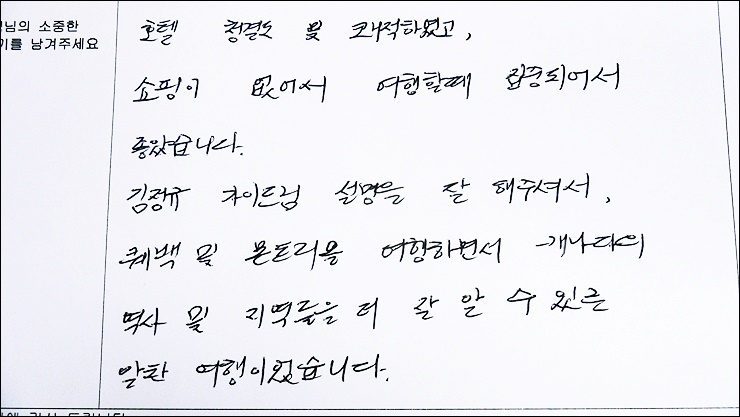 님의 소중한
기를 남겨주세요
호텔 청결도 및 쾌적하였고,
쇼핑이 없어서 여행할때 집중되어서
좋았습니다.
김정규 가이드님 설명을 잘 해주셔서,
퀘백 및 몬트리올 여행하면서 캐나다의
역사 및 지역들을 더 잘 알 수 있는
알찬 여행이었습니다.